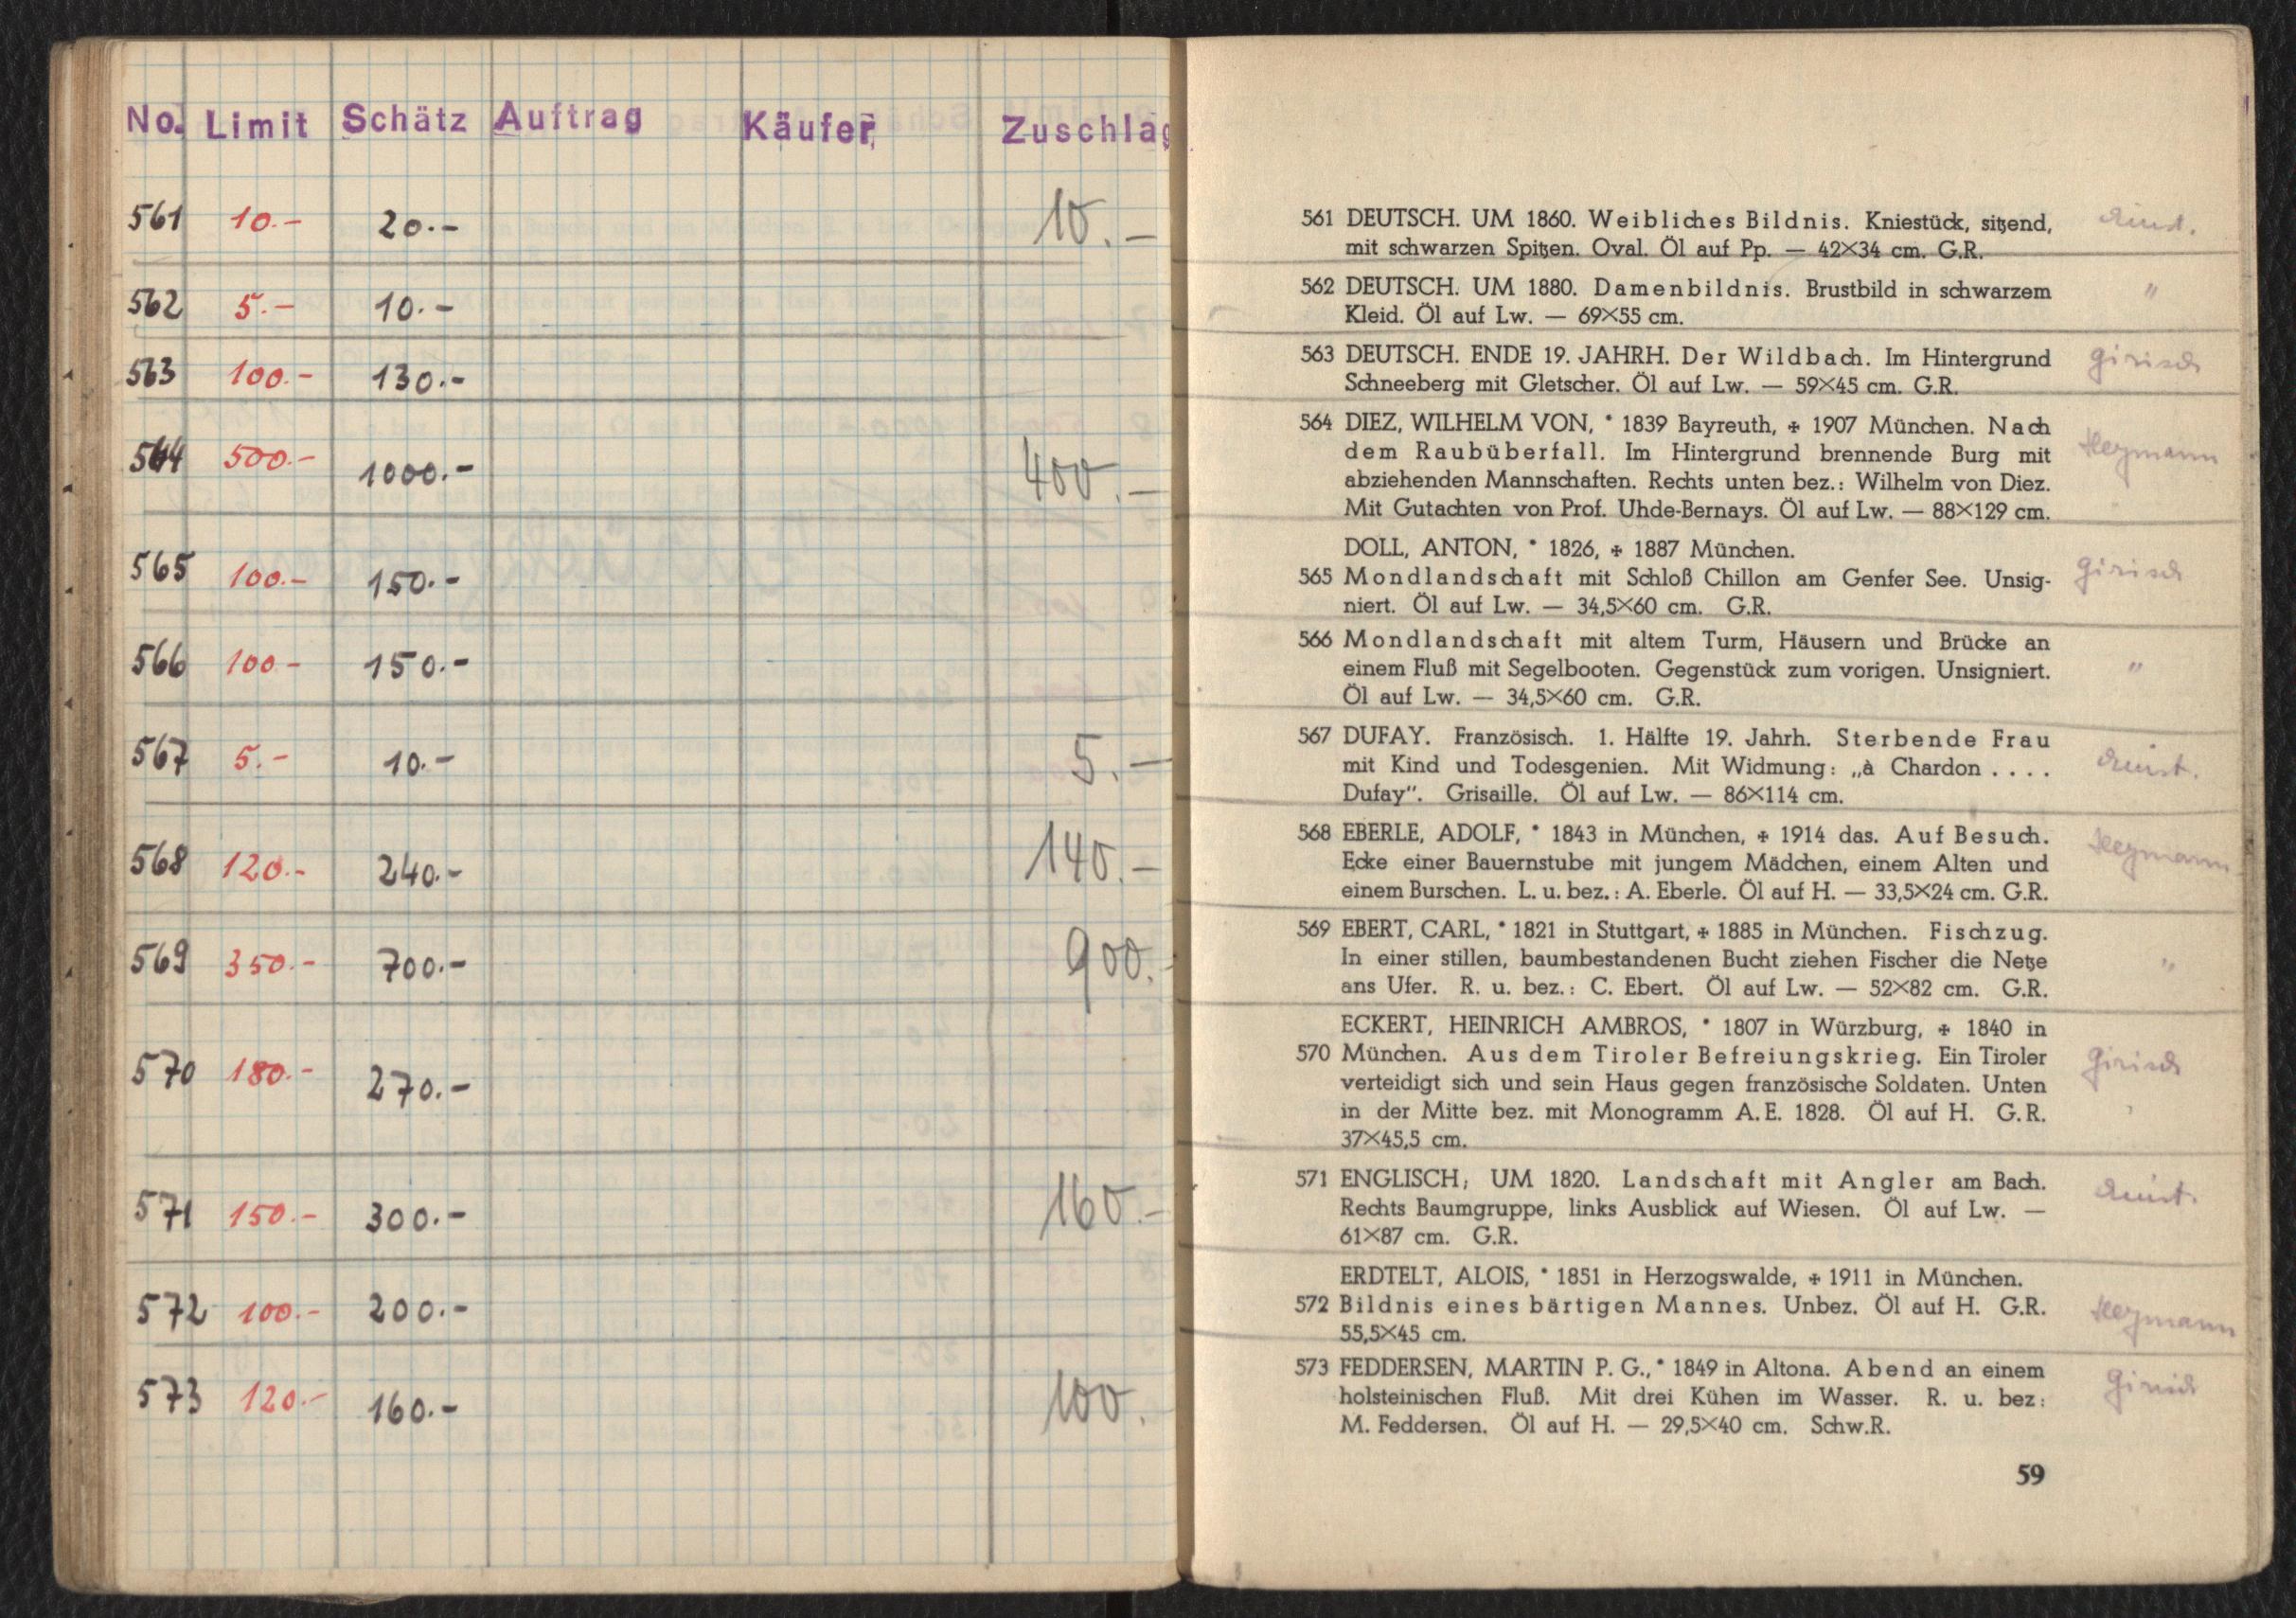 No. Limit Schätz Auftrag Käufer Zuschlag
561 10.- 20.- 10.-
562 5.- 10.-
563 100.- 130.-
564 500.- 1000.- 400.-
565 100.- 150.-
566 100.- 150.-
567 5.- 10.- 5.-
568 120.- 240.- 140.-
569 350.- 700.- 900.-
570 180.- 270.-
571 150.- 300.- 160.-
572 100.- 200.-
573 120.- 160.- 100.
561 DEUTSCH. UM 1860. Weibliches Bildnis. Kniestück, sitzend,
mit schwarzen Spitzen. Oval. Öl auf Pp. — 42×34 cm. G.R.
562 DEUTSCH. UM 1880. Damenbildnis. Brustbild in schwarzem "
Kleid. Öl auf Lw. — 69×55 cm.
563 DEUTSCH. ENDE 19. JAHRH. Der Wildbach. Im Hintergrund Girisch
Schneeberg mit Gletscher. Öl auf Lw. — 59×45 cm. G.R.
564 DIEZ, WILHELM VON, * 1839 Bayreuth, ✠ 1907 München. Nach
dem Raubüberfall. Im Hintergrund brennende Burg mit Heymann
abziehenden Mannschaften. Rechts unten bez.: Wilhelm von Diez.
Mit Gutachten von Prof. Uhde-Bernays. Öl auf Lw. — 88×129 cm.
DOLL, ANTON, * 1826, ✠ 1887 München.
565 Mondlandschaft mit Schloß Chillon am Genfer See. Unsig- Girisch
niert. Öl auf Lw. — 34,5×60 cm. G.R.
566 Mondlandschaft mit altem Turm, Häusern und Brücke an
einem Fluß mit Segelbooten. Gegenstück zum vorigen. Unsigniert. "
Öl auf Lw. — 34,5×60 cm. G.R.
567 DUFAY. Französisch. 1. Hälfte 19. Jahrh. Sterbende Frau
mit Kind und Todesgenien. Mit Widmung: „à Chardon . . . .
Dufay". Grisaille. Öl auf Lw. — 86×114 cm.
568 EBERLE, ADOLF, * 1843 in München, ✠ 1914 das. Auf Besuch.
Ecke einer Bauernstube mit jungem Mädchen, einem Alten und Heymann
einem Burschen. L. u. bez.: A. Eberle. Öl auf H. — 33,5×24 cm. G.R.
569 EBERT, CARL, * 1821 in Stuttgart, ✠ 1885 in München. Fischzug.
In einer stillen, baumbestandenen Bucht ziehen Fischer die Netze "
ans Ufer. R. u. bez.: C. Ebert. Öl auf Lw. — 52×82 cm. G.R.
ECKERT, HEINRICH AMBROS, * 1807 in Würzburg, ✠ 1840 in
570 München. Aus dem Tiroler Befreiungskrieg. Ein Tiroler Girisch
verteidigt sich und sein Haus gegen französische Soldaten. Unten
in der Mitte bez. mit Monogramm A.E. 1828. Öl auf H. G.R.
37×45,5 cm.
571 ENGLISCH; UM 1820. Landschaft mit Angler am Bach.
Rechts Baumgruppe, links Ausblick auf Wiesen. Öl auf Lw. —
61×87 cm. G.R.
ERDTELT, ALOIS, * 1851 in Herzogswalde, ✠ 1911 in München.
572 Bildnis eines bärtigen Mannes. Unbez. Öl auf H. G.R. Heymann
55,5×45 cm.
573 FEDDERSEN, MARTIN P. G., * 1849 in Altona. Abend an einem Girisch
holsteinischen Fluß. Mit drei Kühen im Wasser. R. u. bez:
M. Feddersen. Öl auf H. — 29,5×40 cm. Schw.R.
59